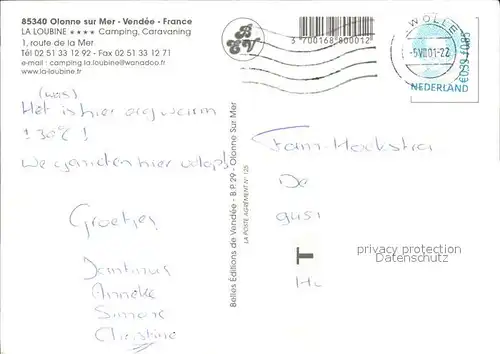 85340 Olonne sur Mer - Vendée - France
LA LOUBINE ★★★★ Camping, Caravaning
1, route de la Mer
Tél 02 51 33 12 92 - Fax 02 51 33 12 71
e-mail : camping.la.loubine@wanadoo.fr
www.la-loubine.fr
Het is hier erg warm
± 30°C !
We genieten hier volop!
Groetjes
Jantinus
Anneke
Simone
Christine
BEV
3 700168 800012
Belles Éditions de Vendée - B.P. 29 - Olonne Sur Mer
LA POSTE AGRÉMENT N° 125
ZWOLLE
NEDERLAND
€0,39 f0,85
Fam. Hoekstra
De
T
privacy protection
Datenschutz